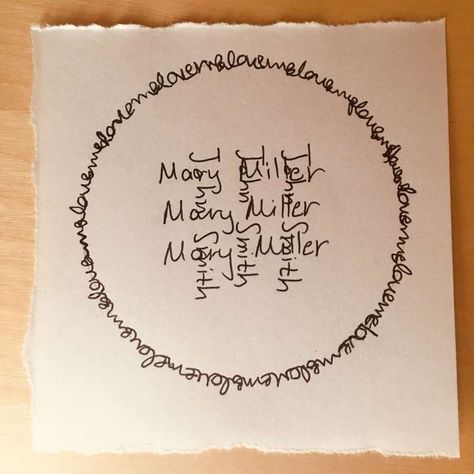 lovemelovemelovemelovemelovemelovemelovemelovemelovemelovemelovemelovemelovemelovemelovemeloveme
Mary Miller
Mary Miller
Mary Miller
John Smith
John Smith
John Smith